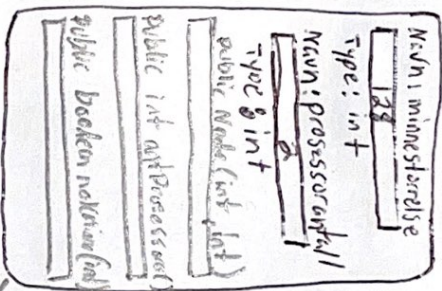 Navn: minnestorrelse
128
Type: int
Navn: prosessorantall
2
Type: int
public Node(int, int)
public int antProsessorer()
public boolean nokMinne(int)